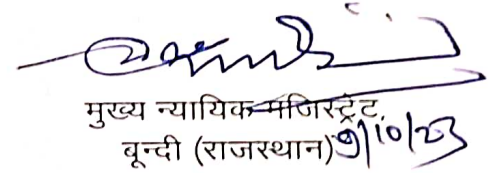 मुख्य न्यायिक मजिस्ट्रेट,
बून्दी (राजस्थान) 9/10/23